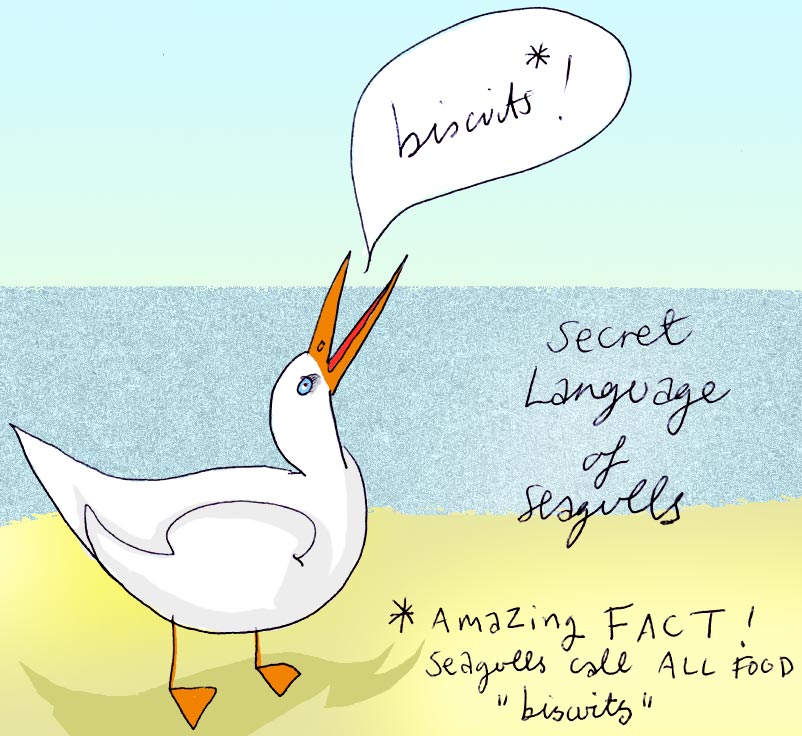 biscuits*!
Secret
Language
of
Seagulls
* Amazing FACT!
Seagulls call ALL FOOD
"biscuits"